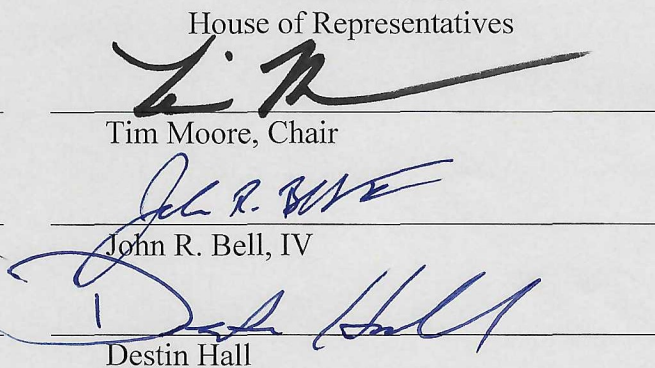 House of Representatives
Tim Moore, Chair
John R. Bell IV
John R. Bell, IV
Destin Hall
Destin Hall